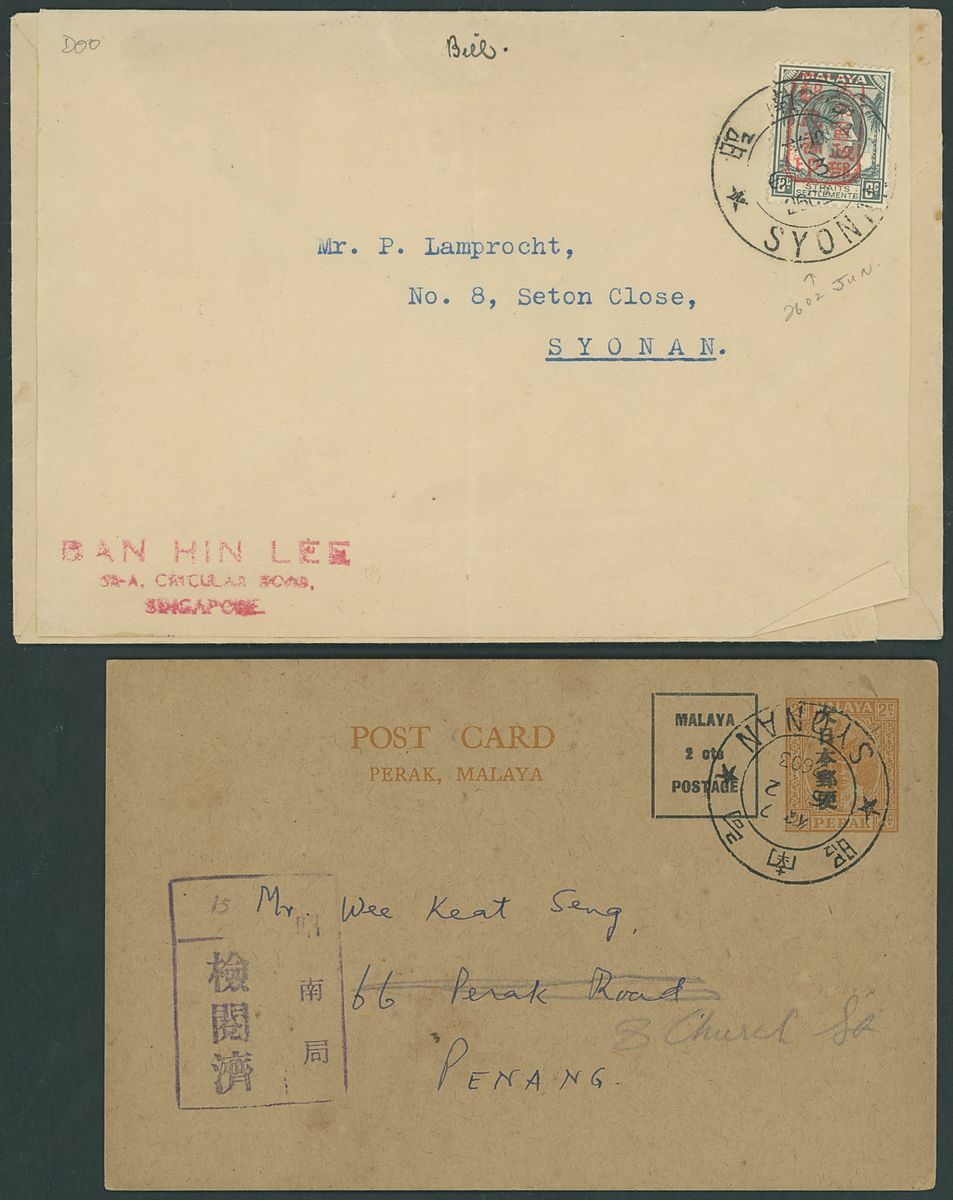 Doo
Bill.
MALAYA
STRAITS
SETTLEMENTS
昭
SYONAN
2602 JUN.
Mr. P. Lamprocht,
No. 8, Seton Close,
SYONAN.
BAN HIN LEE
CIRCULAR ROAD,
SINGAPORE
POST CARD
PERAK, MALAYA
MALAYA
2 cts
POSTAGE
MALAYA 2c
大日本郵便
PERAK
SYONAN
昭南
15
昭南局
檢閲濟
Mr. Wee Keat Seng,
66 Perak Road
8 Church St
PENANG.